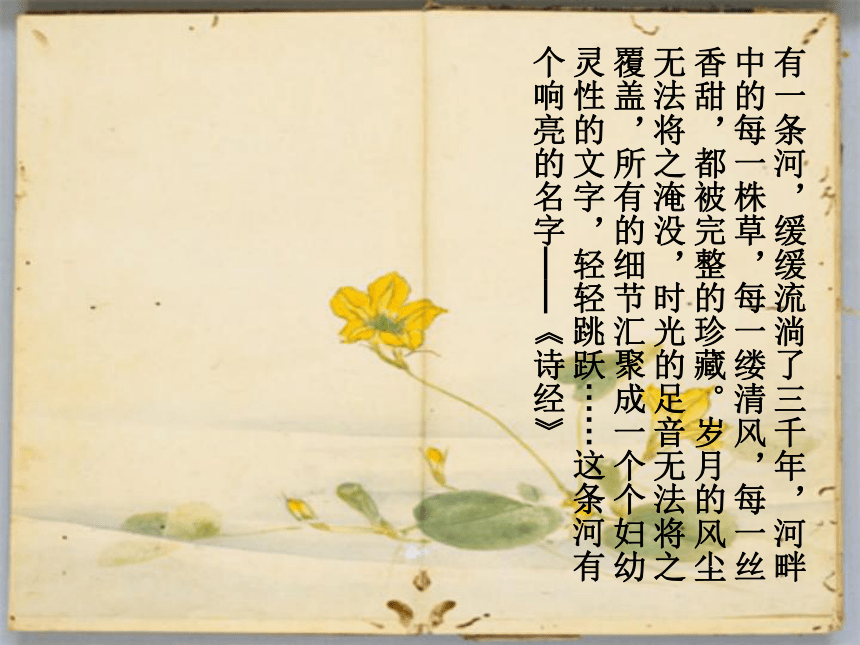 有一条河，缓缓流淌了三千年，河畔
中的每一株草，每一缕清风，每一丝
香甜，都被完整的珍藏。岁月的风尘
无法将之淹没，时光的足音无法将之
覆盖，所有的细节汇聚成一个个妇幼
灵性的文字，轻轻跳跃……这条河有
个响亮的名字——《诗经》